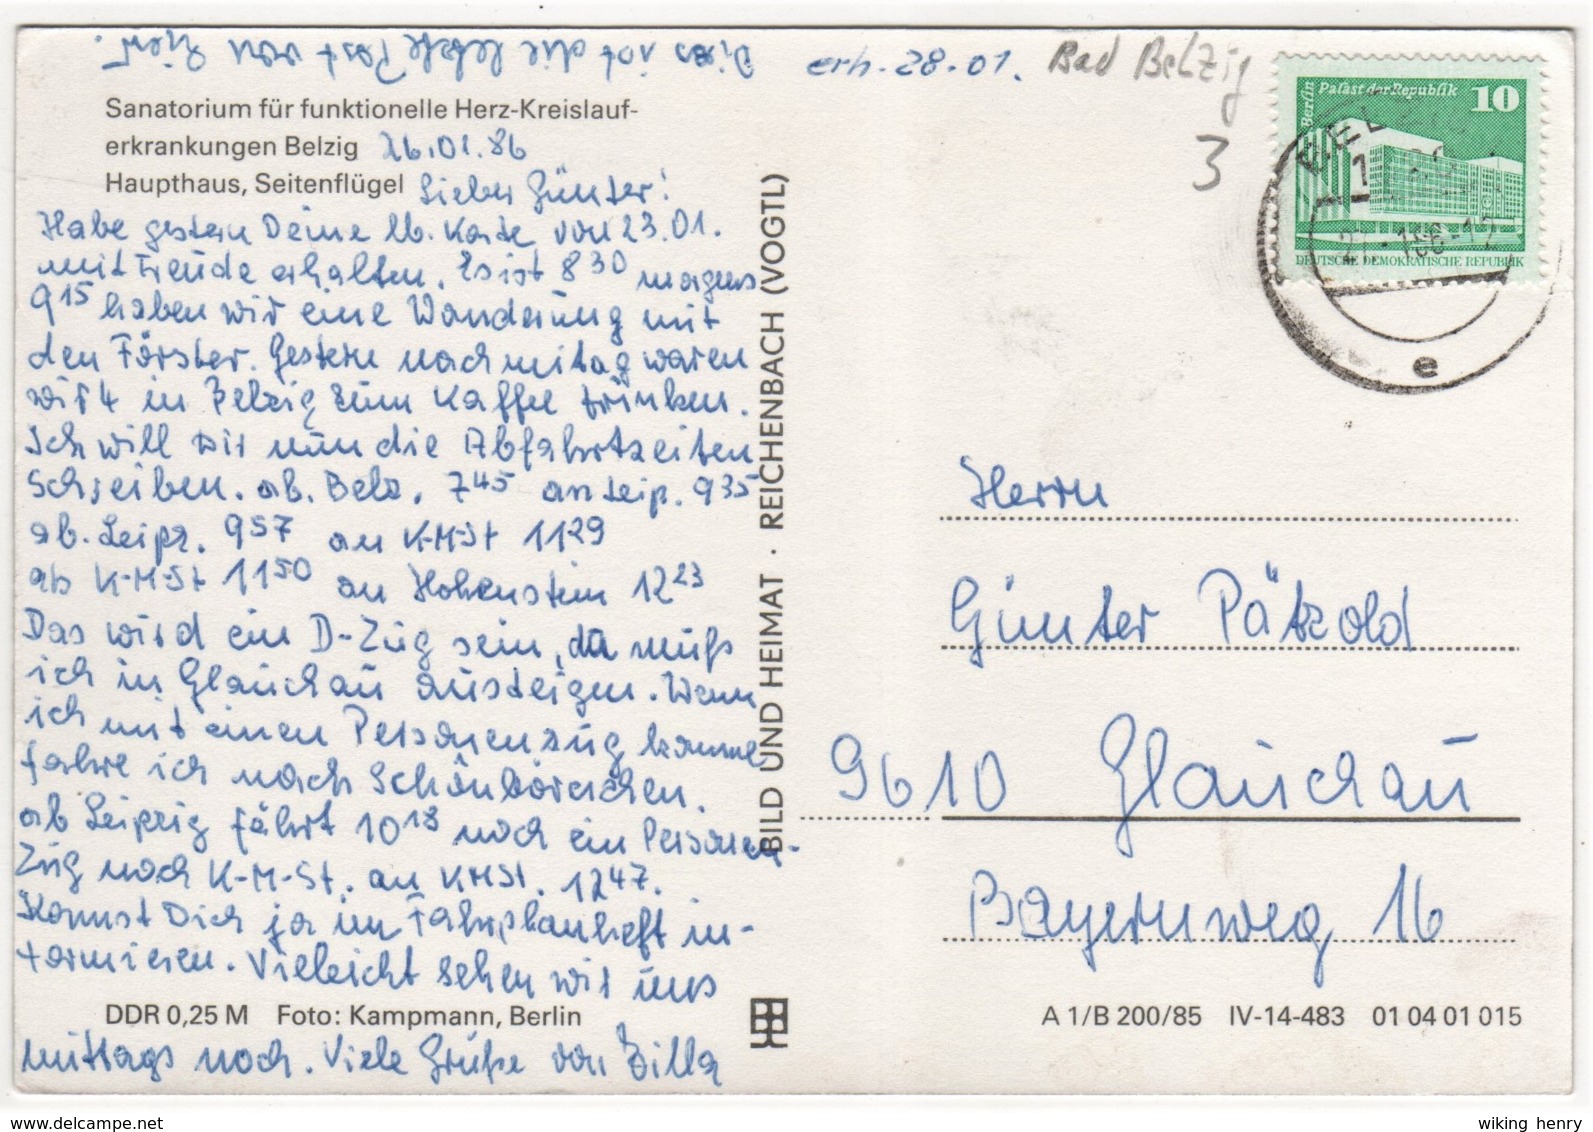 Dies ist die letzte Post von hier.
erh. 28.01. Bad Belzig
3
Sanatorium für funktionelle Herz-Kreislauf-
erkrankungen Belzig 26.01.86
Haupthaus, Seitenflügel Lieber Günter!
Habe gestern Deine lb. Karte von 23.01.
mit Freude erhalten. Es ist 8 30 morgens
9 15 haben wir eine Wanderung mit
den Förster. Gestern nachmitag waren
wir 4 in Belzig zum Kaffee trinken.
Ich will Dir nun die Abfahrtzeiten
Schreiben. ab. Belz. 7 45 an Leip. 9 35
ab. Leipz. 9 57 an K-M-St 11 29
ab K-M-St 11 50 an Hohenstein 12 23
Das wird ein D-Zug sein, da muß
ich in Glauchau aussteigen. Wenn
ich mit einen Personenzug komme
fahre ich nach Schönbörnchen.
ab Leipzig fährt 10 18 noch ein Personen-
Zug nach K-M-St. an KMSt. 12 47.
Kannst Dich ja im Fahrplanheft in-
formieren. Vielleicht sehen wir uns
DDR 0,25 M Foto: Kampmann, Berlin
mittags noch. Viele Grüße von Zilla
BILD UND HEIMAT · REICHENBACH (VOGTL)
Berlin
Palast der Republik 10
DEUTSCHE DEMOKRATISCHE REPUBLIK
BELZIG
e
Herrn
Günter Pätzold
9610 Glauchau
Bayernweg 16
A 1/B 200/85 IV-14-483 01 04 01 015
wiking henry
www.delcampe.net